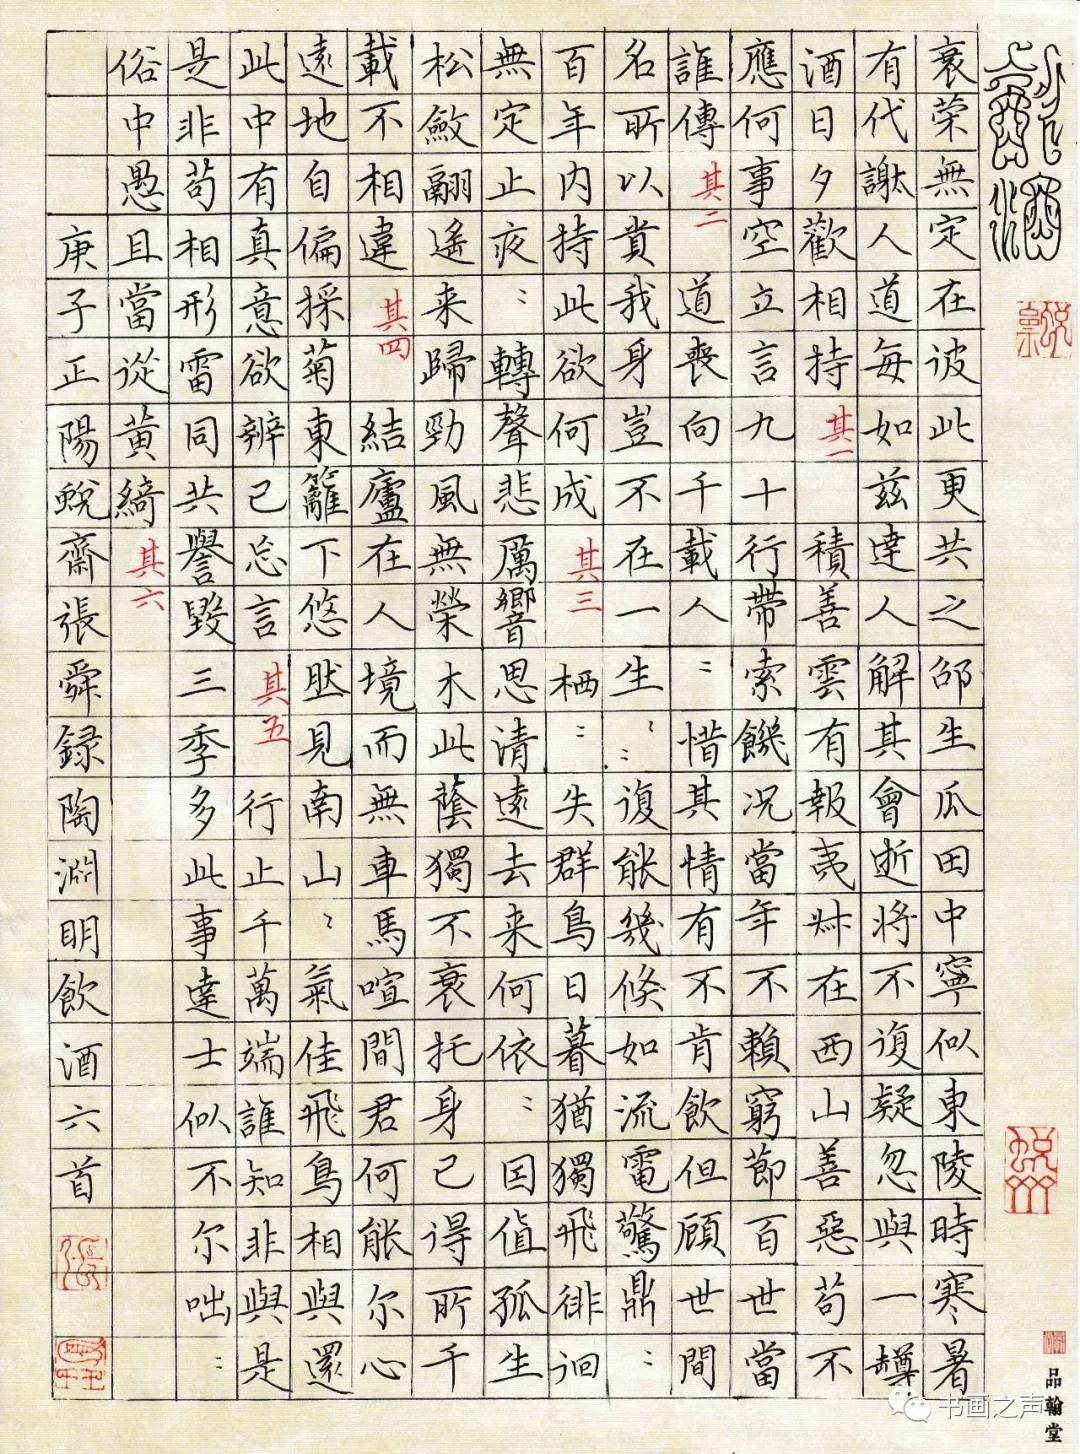 衰荣無定在彼此更共之邵生瓜田中寧似東陵時寒暑
有代謝人道每如兹達人解其會逝将不復疑忽與一樽
酒日夕歡相持其一積善雲有報夷叔在西山善惡苟不
應何事空立言九十行帶索饑况當年不賴窮節百世當
誰傳其二道喪向千載人〻惜其情有不肯飲但顧世間
名所以貴我身豈不在一生〻〻復能幾倏如流電驚鼎〻
百年内持此欲何成其三栖〻失群鳥日暮猶獨飛徘徊
無定止夜〻轉聲悲厲響思清遠去来何依〻因值孤生
松斂翮遥来歸勁風無榮木此蔭獨不衰托身已得所千
載不相違其四結廬在人境而無車馬喧問君何能尔心
遠地自偏採菊東籬下悠然見南山〻氣佳飛鳥相與還
此中有真意欲辨已忘言其五行止千萬端誰知非與是
是非苟相形雷同共譽毀三季多此事達士似不尔咄〻
俗中愚且當從黃綺其六
庚子正陽蛻齋張舜録陶淵明飲酒六首
品翰堂
书画之声